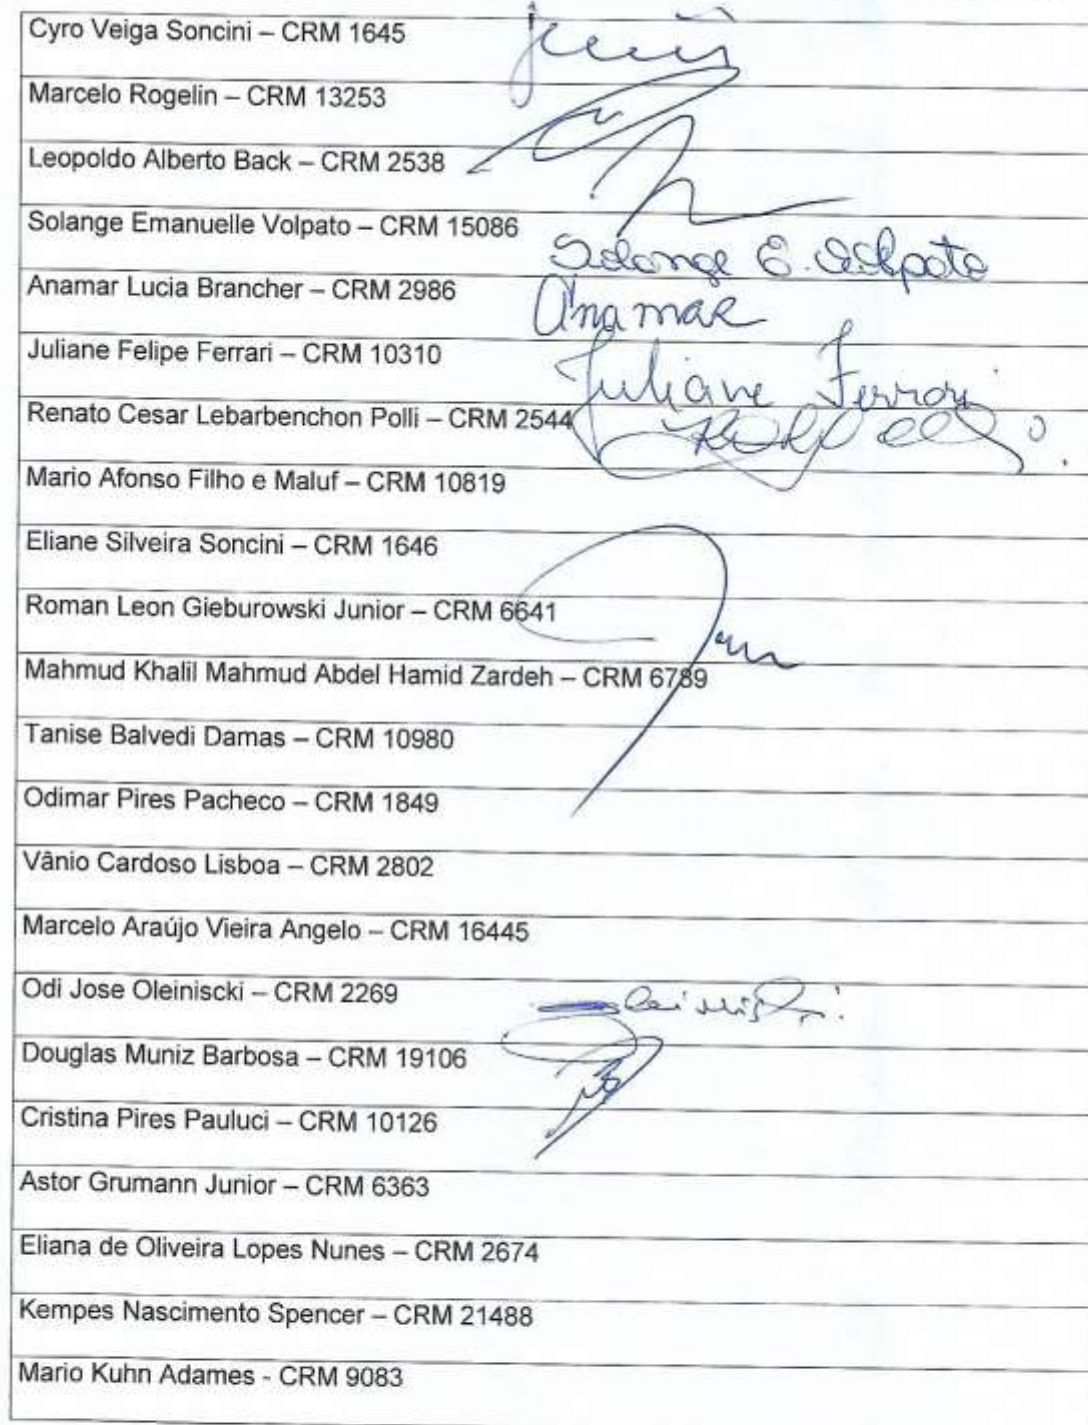 Cyro Veiga Soncini – CRM 1645
Marcelo Rogelin – CRM 13253
Leopoldo Alberto Back – CRM 2538
Solange Emanuelle Volpato – CRM 15086
Solange E. Volpato
Anamar Lucia Brancher – CRM 2986
Anamar
Juliane Felipe Ferrari – CRM 10310
Juliane Ferrari
Renato Cesar Lebarbenchon Polli – CRM 2544
Mario Afonso Filho e Maluf – CRM 10819
Eliane Silveira Soncini – CRM 1646
Roman Leon Gieburowski Junior – CRM 6641
Mahmud Khalil Mahmud Abdel Hamid Zardeh – CRM 6789
Tanise Balvedi Damas – CRM 10980
Odimar Pires Pacheco – CRM 1849
Vânio Cardoso Lisboa – CRM 2802
Marcelo Araújo Vieira Angelo – CRM 16445
Odi Jose Oleiniscki – CRM 2269
Douglas Muniz Barbosa – CRM 19106
Cristina Pires Pauluci – CRM 10126
Astor Grumann Junior – CRM 6363
Eliana de Oliveira Lopes Nunes – CRM 2674
Kempes Nascimento Spencer – CRM 21488
Mario Kuhn Adames - CRM 9083